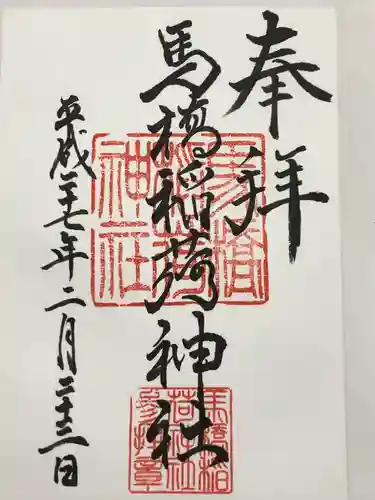 奉拝
馬橋稲荷神社
平成二十七年二月二十三日
馬橋稲荷神社
馬橋稲荷神社参拝章